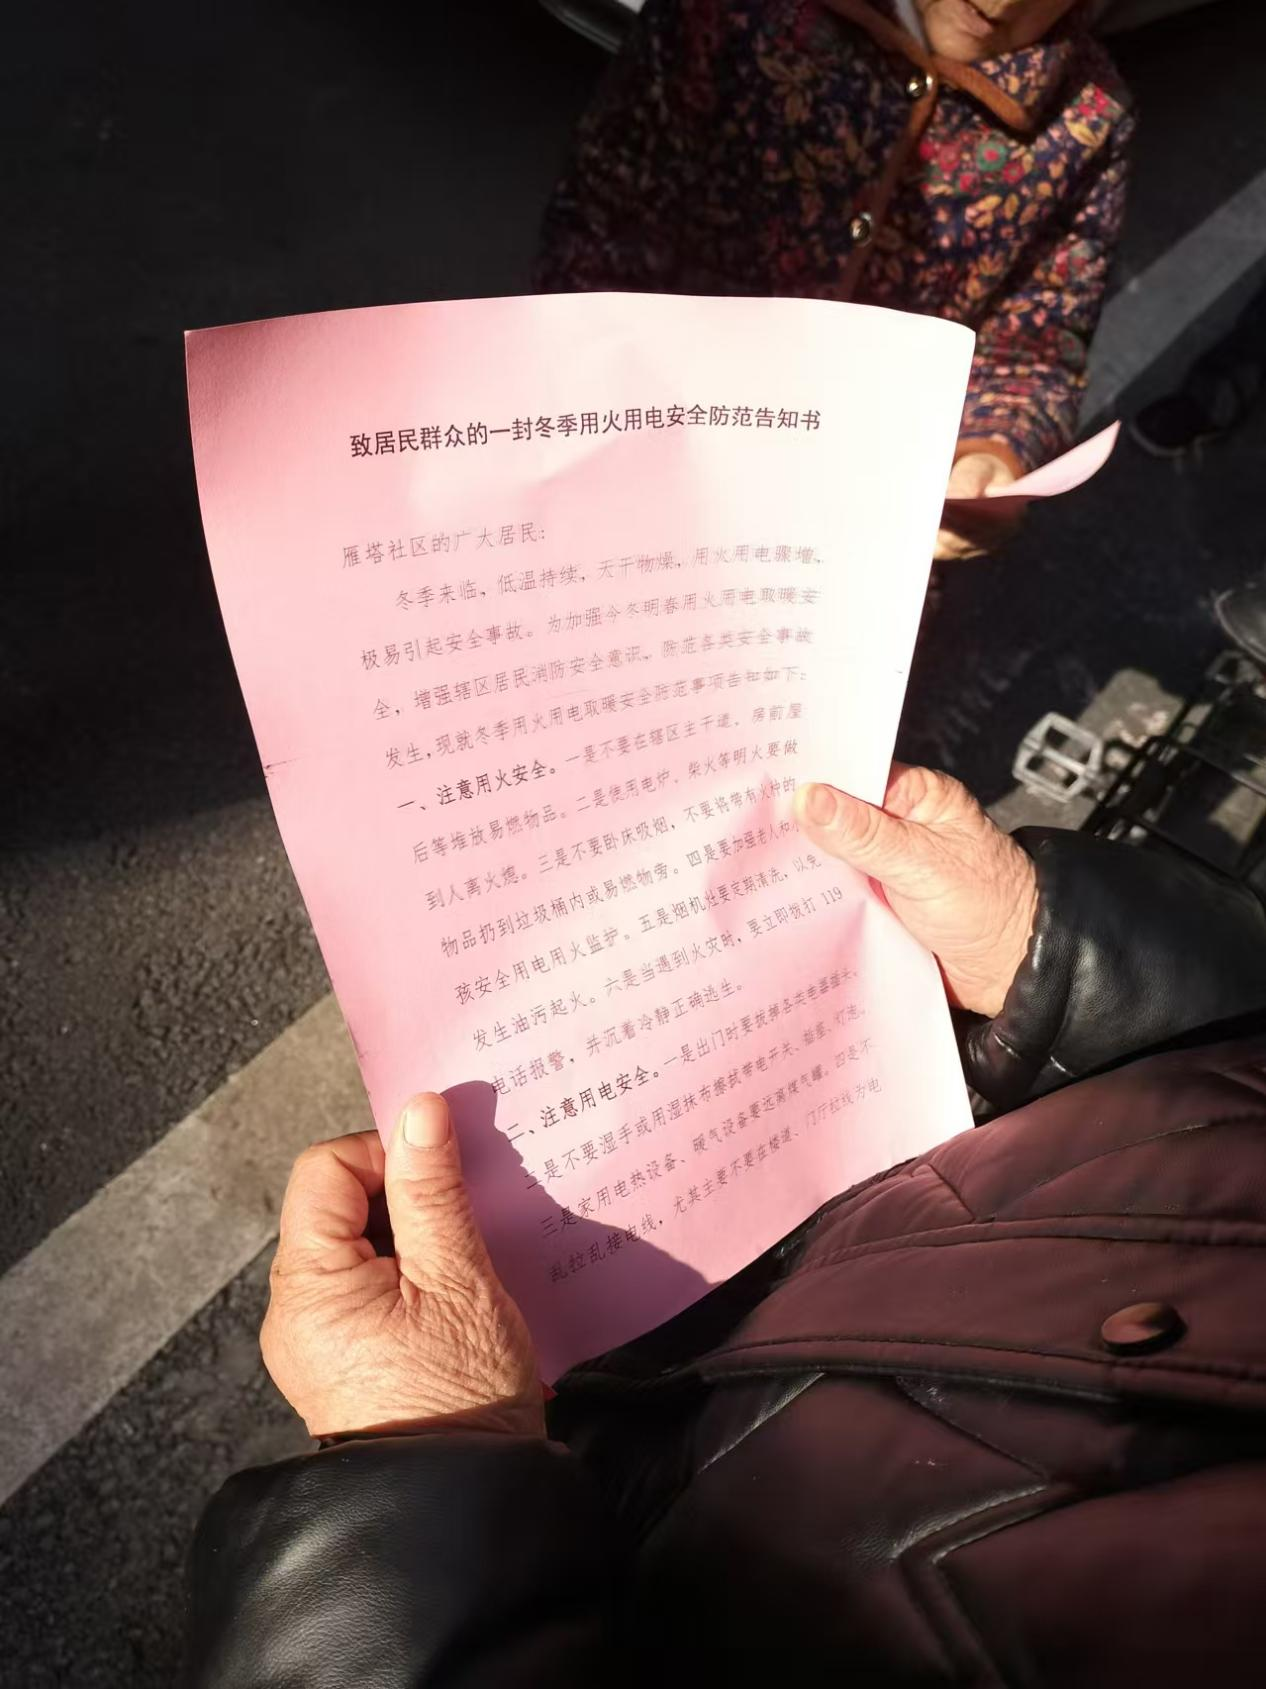 致居民群众的一封冬季用火用电安全防范告知书
雁塔社区的广大居民:
冬季来临，低温持续，天干物燥，用火用电骤增，
极易引起安全事故。为加强今冬明春用火用电取暖安
全，增强辖区居民消防安全意识，防范各类安全事故
发生，现就冬季用火用电取暖安全防范事项告知如下：
一、注意用火安全。一是不要在辖区主干道，房前屋
后等堆放易燃物品。二是使用电炉、柴火等明火要做
到人离火熄。三是不要卧床吸烟，不要将带有火种的
物品扔到垃圾桶内或易燃物旁。四是要加强老人和小
孩安全用电用火监护。五是烟机灶要定期清洗，以免
发生油污起火。六是当遇到火灾时，要立即拨打 119
电话报警，并沉着冷静正确逃生。
二、注意用电安全。一是出门时要拔掉各类电器插头。
二是不要湿手或用湿抹布擦拭带电开关、插座、灯泡。
三是家用电热设备、暖气设备要远离煤气罐。四是不
乱拉乱接电线，尤其主要不要在楼道、门厅拉线为电